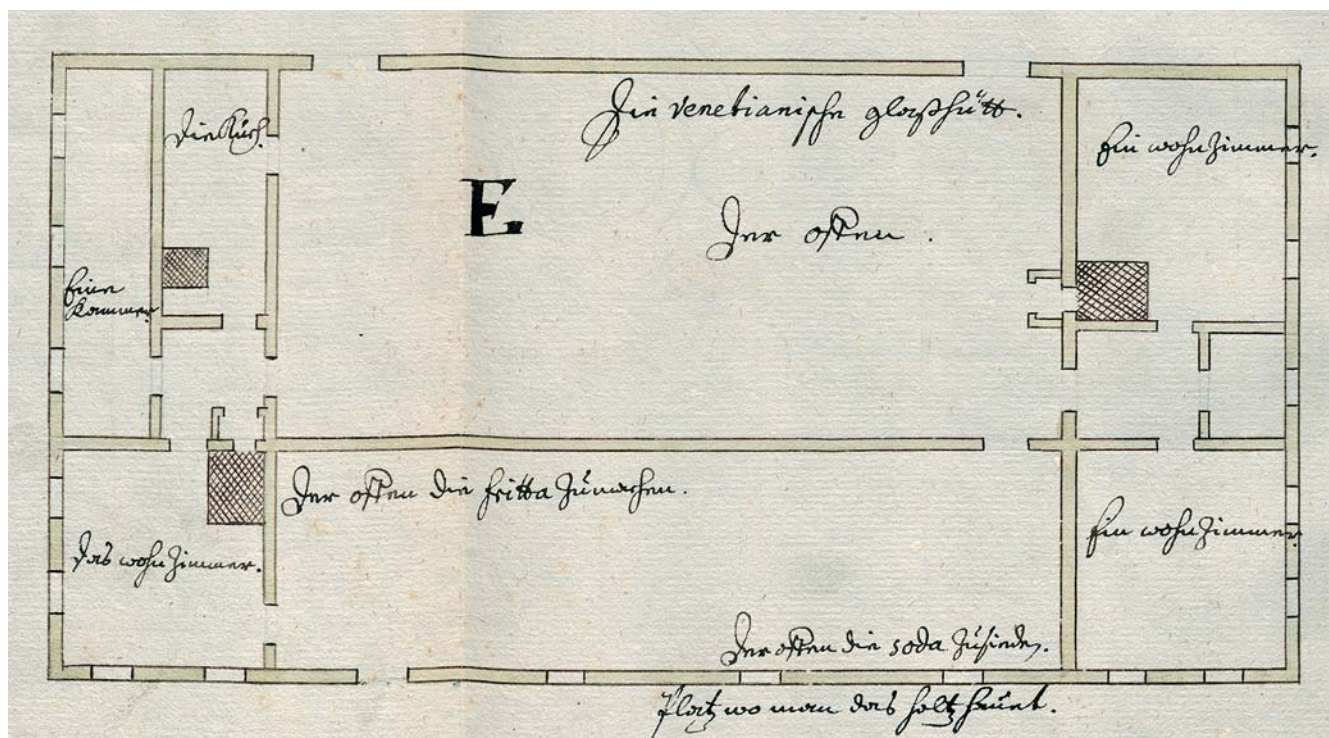 Die venetianische glaßhütt.
Die Küch.
Ein wohn Zimmer.
E
Der offen.
Eine
Kammer.
Der offen die fritta Zumachen.
Das wohn Zimmer.
Ein wohn Zimmer.
Der offen die soda Zusieden.
Platz wo man das holtz hauet.